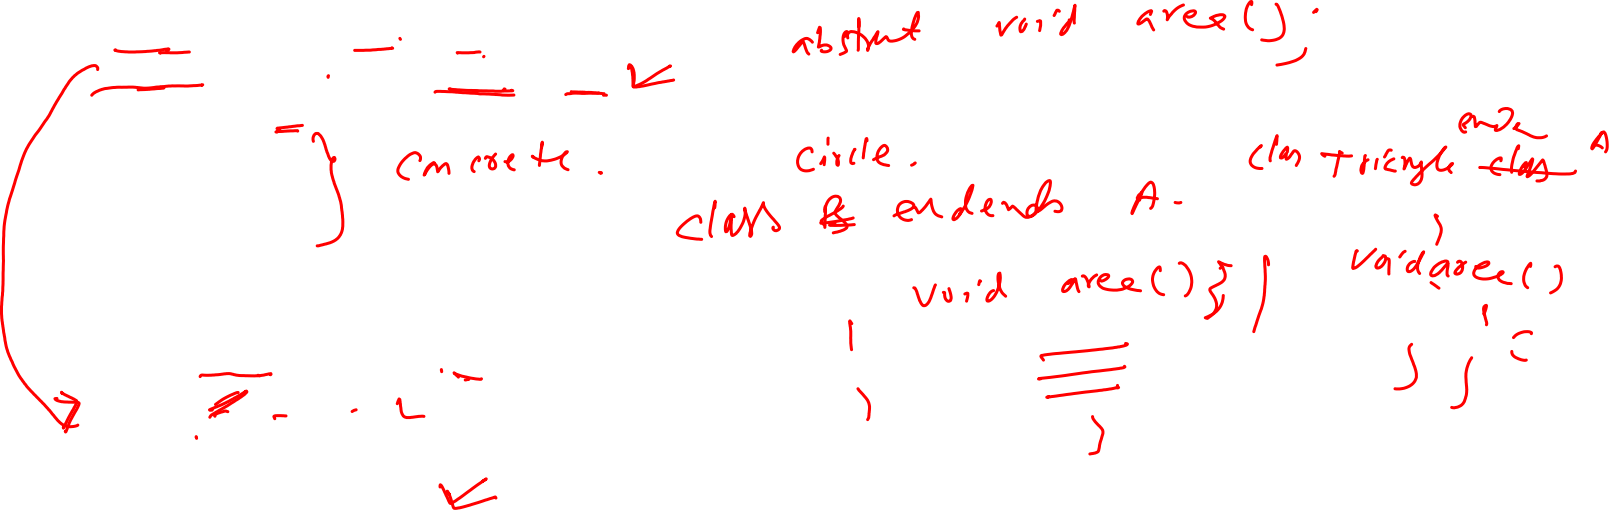 abstract void area();
concrete.
circle.
class extends A.
void area(){
}
class Triangle A
void area()
}